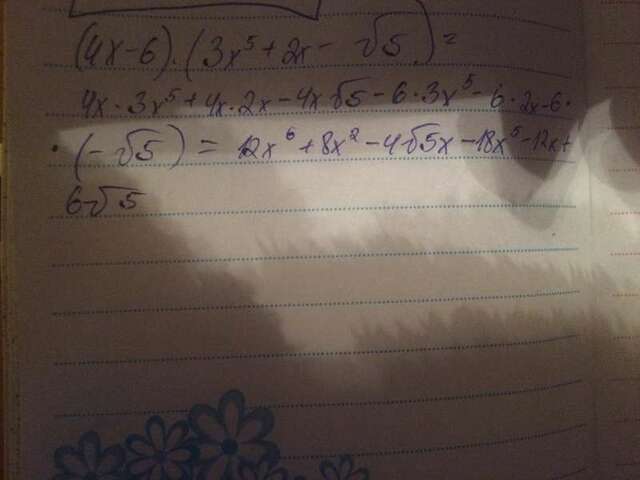 (4x-6)·(3x⁵+2x-√5)=
4x·3x⁵+4x·2x-4x√5-6·3x⁵-6·2x-6·
·(-√5)=12x⁶+8x²-4√5x-18x⁵-12x+
6√5